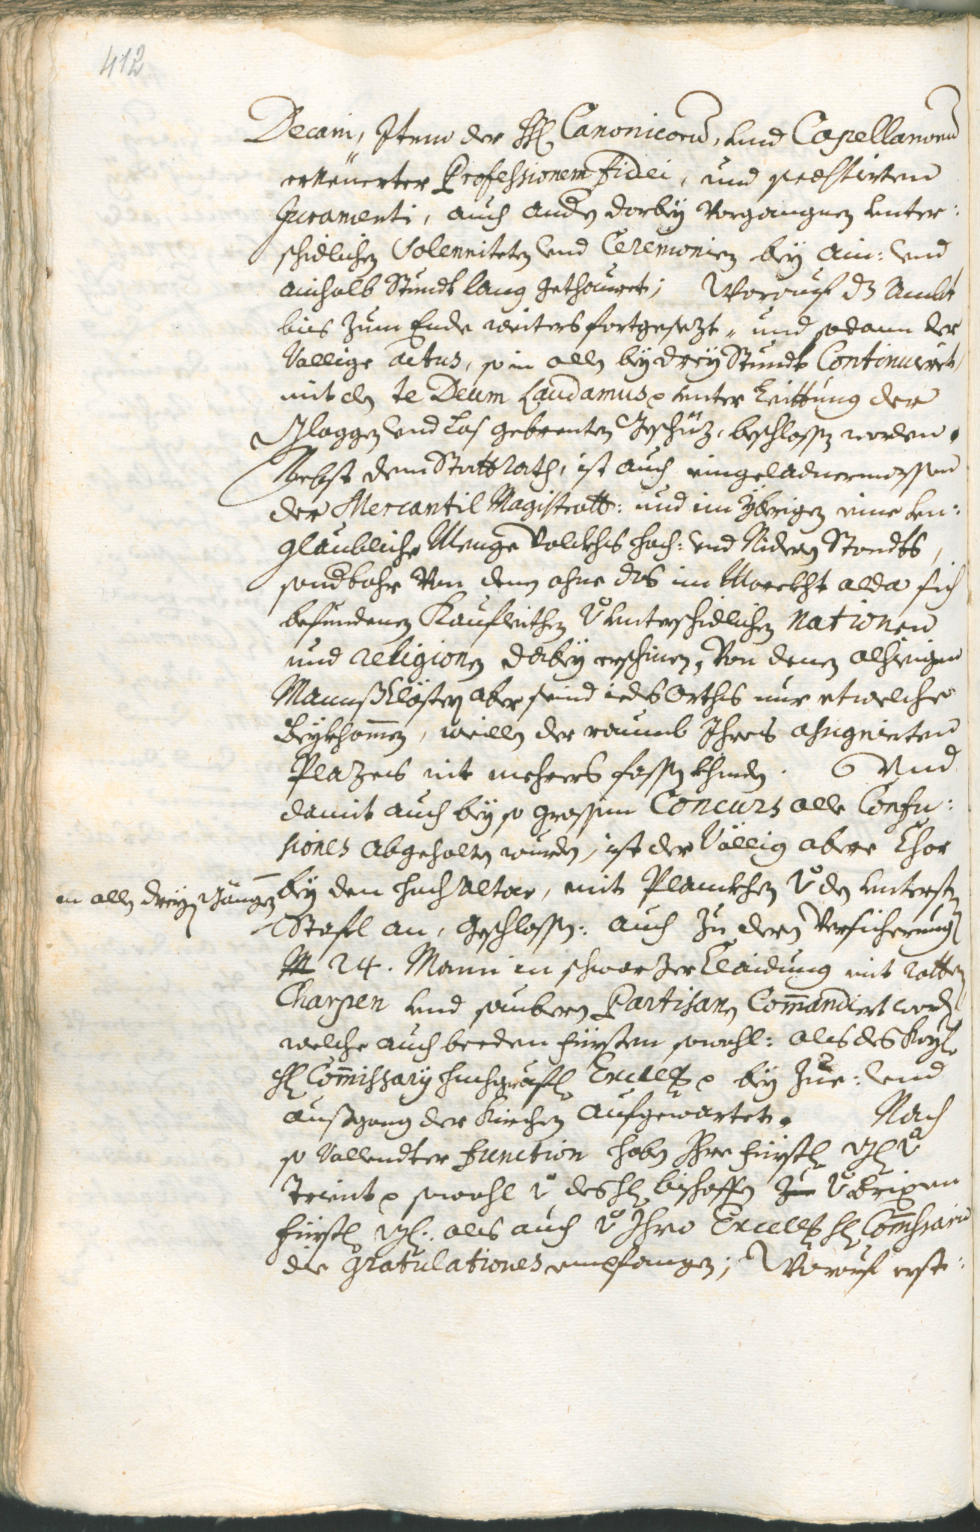 412
Decani, Item der HH. Canonicorum, und Capellanorum
erneuerter Professionem fidei, und praestirten
Juramenti, auch andern darbey vorgangnen unter:
schidlichen Solenniteten und Ceremonien bey ain: und
ainhalb Stundt lang gethauret; Worauf dz Ambt
bis zum Ende weiters fortgesezt, und sodann der
Vallige actus, so in allen bey drey Stundt Continuiret,
mit den te Deum Laudamus unter Leittung der
Gloggen und Los gebrenten Geschüz, beschlossen worden.
Nebst dem Stattrath, ist auch eingeladnermassen
der Mercantil Magistratt: und im Ybrigen eine un:
glaubliche Menge Volckhs hoch: und Nidern Standts,
sonderbahr von denen ohne das im Marckht alda sich
befundenen Kaufleithen v. unterschidlichen Nationen
und religionen darbey erschinen, Von denen alhiesigen
Mannßclöstern aber seind iedes Orths nur etwelche
beykhommen, weillen der raumb Ihres assignierten
Plazes nit mehrers fassen khinden. Und
damit auch bey so grossem Concurs alle Confu:
siones abgehalten wurden, ist der Völlig obere Chor
in allen dreyen Gängen
bey den hochaltar, mit Planckhen v. den untersten
Stafl an, geschlossen: auch zu deren Versicherung
24. Mann in schwarzer Claidung mit rotten
Charpen und saubern Partisanen Commandirt worden
welche auch beeden fürsten sowohl: als des Kayl.
H. Commissary hochgräfl. Excells. bey zue: und
außgang der Kirchen aufgewartet. Nach
so vollendter function haben Ihro fürstl. Gl. v.
Trient sowohl v. des H. bischoffen v. Brixen
fürstl. Gl.: als auch v. Ihro Excells. H. Commissario
die gratulationes empfangen; Worauf erst: